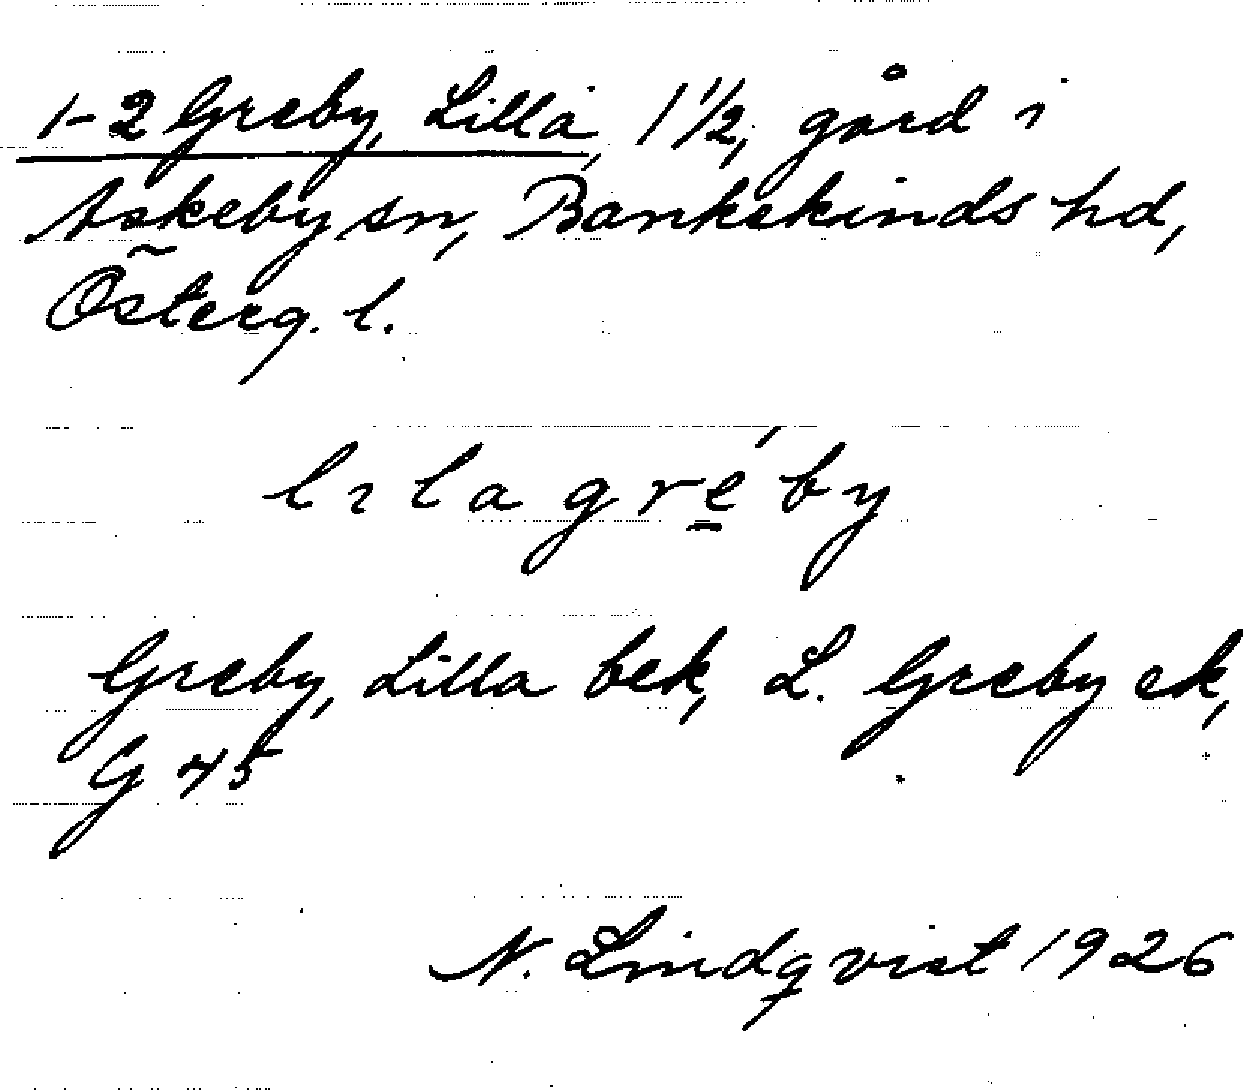 1-2 Greby, Lilla, 1 1/2, gård i
Askeby sn, Bankekinds hd,
Österg. l.
lılagré̲by
Greby, Lilla bek, L. Greby ek,
G 45
N. Lindqvist 1926